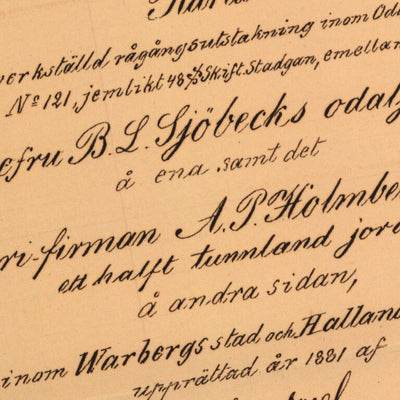 verkställd rågångsutstakning inom Oda
No 121, jemlikt 48 § Skift.Stadgan, emellan
efru B. L. Sjöbecks odalj
å ena samt det
ri-firman A. P. Holmbe
ett halft tunnland jord
å andra sidan,
inom Warbergs stad och Halland
upprättad år 1881 af